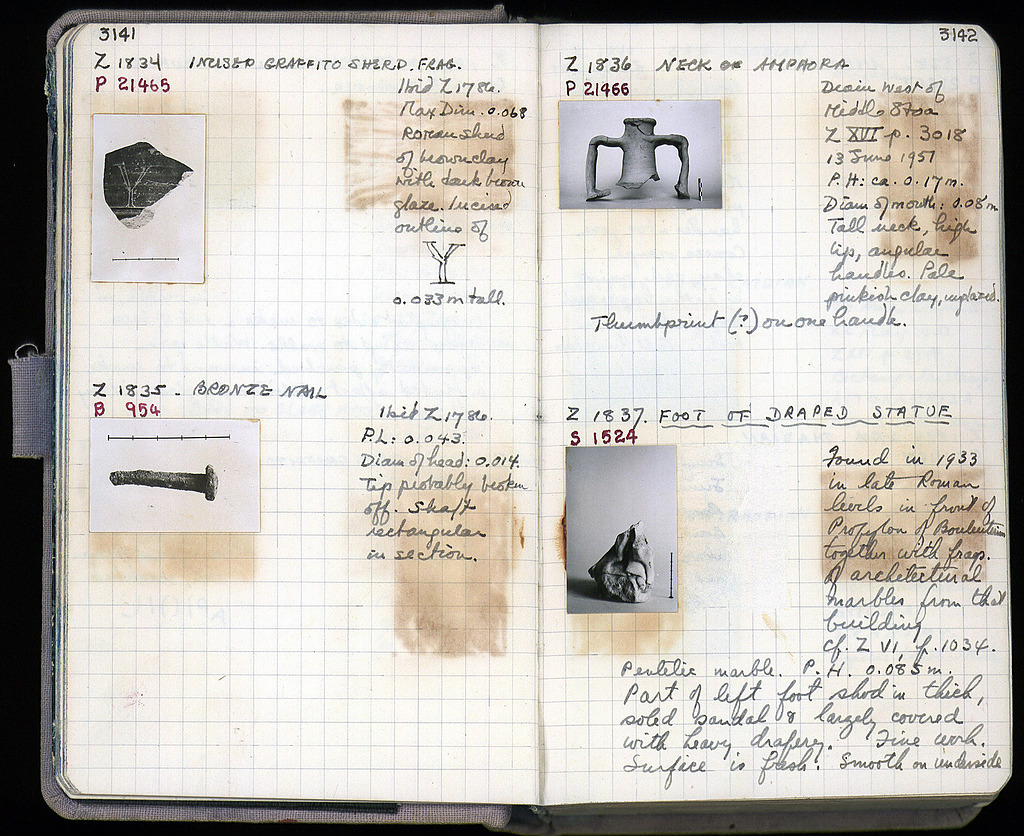 3141
Z 1834 INCISED GRAFFITO SHERD. FRAG.
P 21465
Ibid Z 1786.
Max Dim. 0.068
Roman sherd
of brown clay
with dark brown
glaze. Incised
outline of
0.033 m tall.
Z 1835. BRONZE NAIL
B 954
Ibid Z 1786.
P.L: 0.043.
Diam of head: 0.014.
Tip probably broken
off. Shaft
rectangular
in section.
3142
Z 1836 NECK OF AMPHORA
P 21466
Drain West of
Middle Stoa
Z XVI p. 3018
13 June 1951
P.H: ca. 0.17 m.
Diam of mouth: 0.08 m
Tall neck, high
lip, angular
handles. Pale
pinkish clay, unglazed.
Thumbprint (?) on one handle.
Z 1837. FOOT OF DRAPED STATUE
S 1524
Found in 1933
in late Roman
levels in front of
Propylon of Bouleuterion
together with frags.
of architectural
marbles from that
building
cf. Z VI, p. 1034.
Pentelic marble. P. H. 0.085 m.
Part of left foot shod in thick,
soled sandal & largely covered
with heavy drapery. Fine work.
Surface is fresh. Smooth on underside